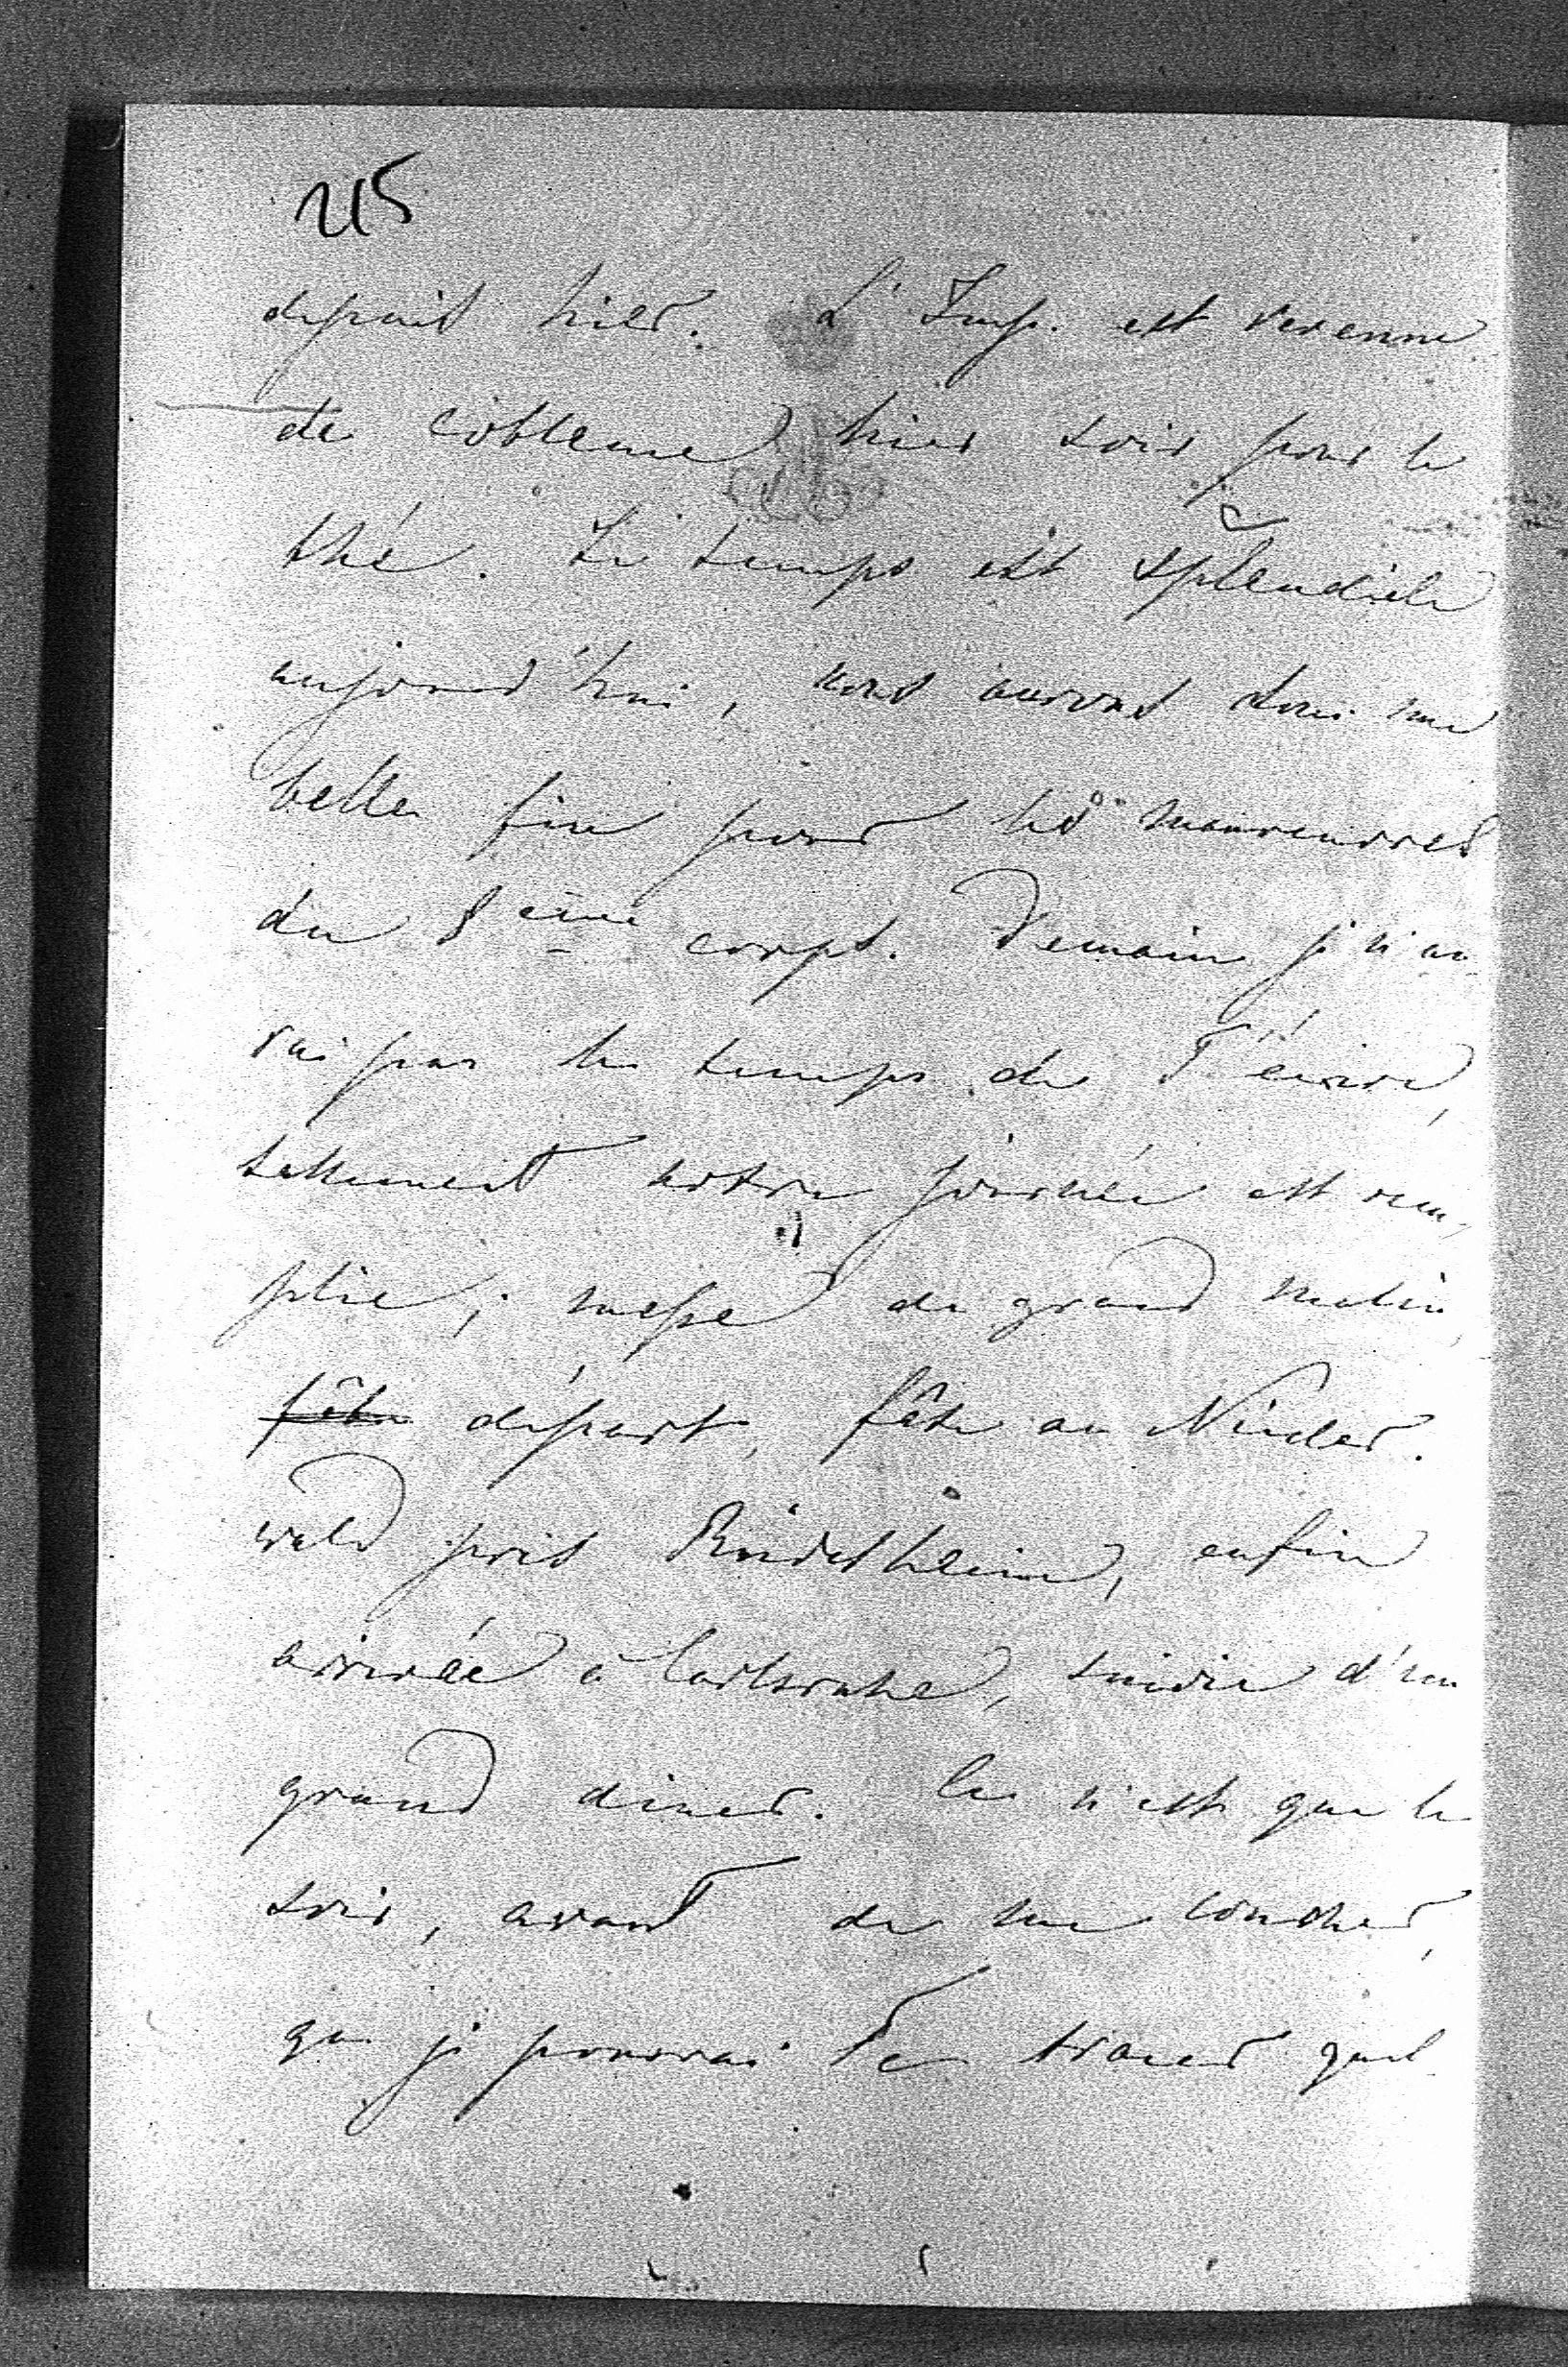 215
depuis hier. L'Imp. est revenue
de Coblence hier soir pour le
thé. Le temps est splendide
aujourd'hui, nous aurons donc une
belle fin pour les manœuvres
du 8ème corps. Demain je n'au
rai pas le temps de T'écrire,
tellement notre journée est rem,
plie; messe de grand matin,
fête départ, fête au Nieder.
wald près Rüdesheim, enfin
arrivée à Carlsruhe, suivie d'un
grand diner. Ce n'est que le
soir, avant de me coucher,
que je pourrai Te tracer quel